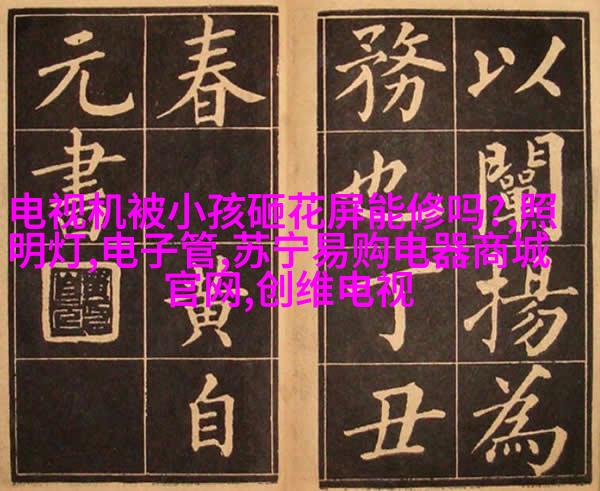 以闡揚為
務也丁丑
春黄自
元書
电视机被小孩砸花屏能修吗?,照
明灯,电子管,苏宁易购电器商城
官网,创维电视